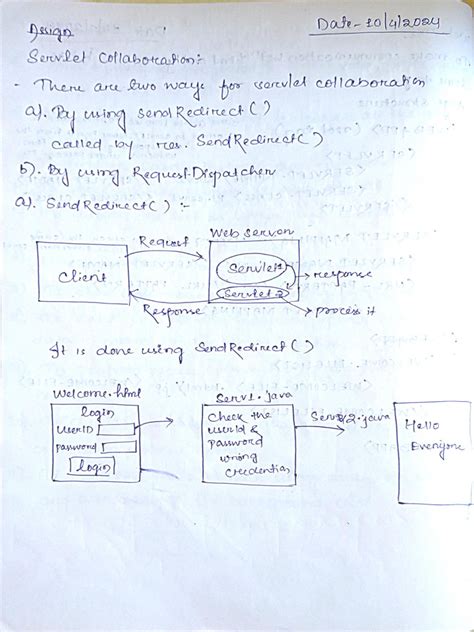 Design
Date- 10/4/2024
Servlet Collaboration:-
- There are two ways for servlet collaboration
a). By using sendRedirect()
called by res. SendRedirect()
b). By using RequestDispatcher
a). SendRedirect() :-
Request
Web servon
Client
Servlet1
response
Servlet 2
Response
process it
It is done using SendRedirect()
Welcome.html
Serv1.java
login
UserID
password
login
Check the
userId &
password
wrong
credential
Serv2.java
Hello
Everyone